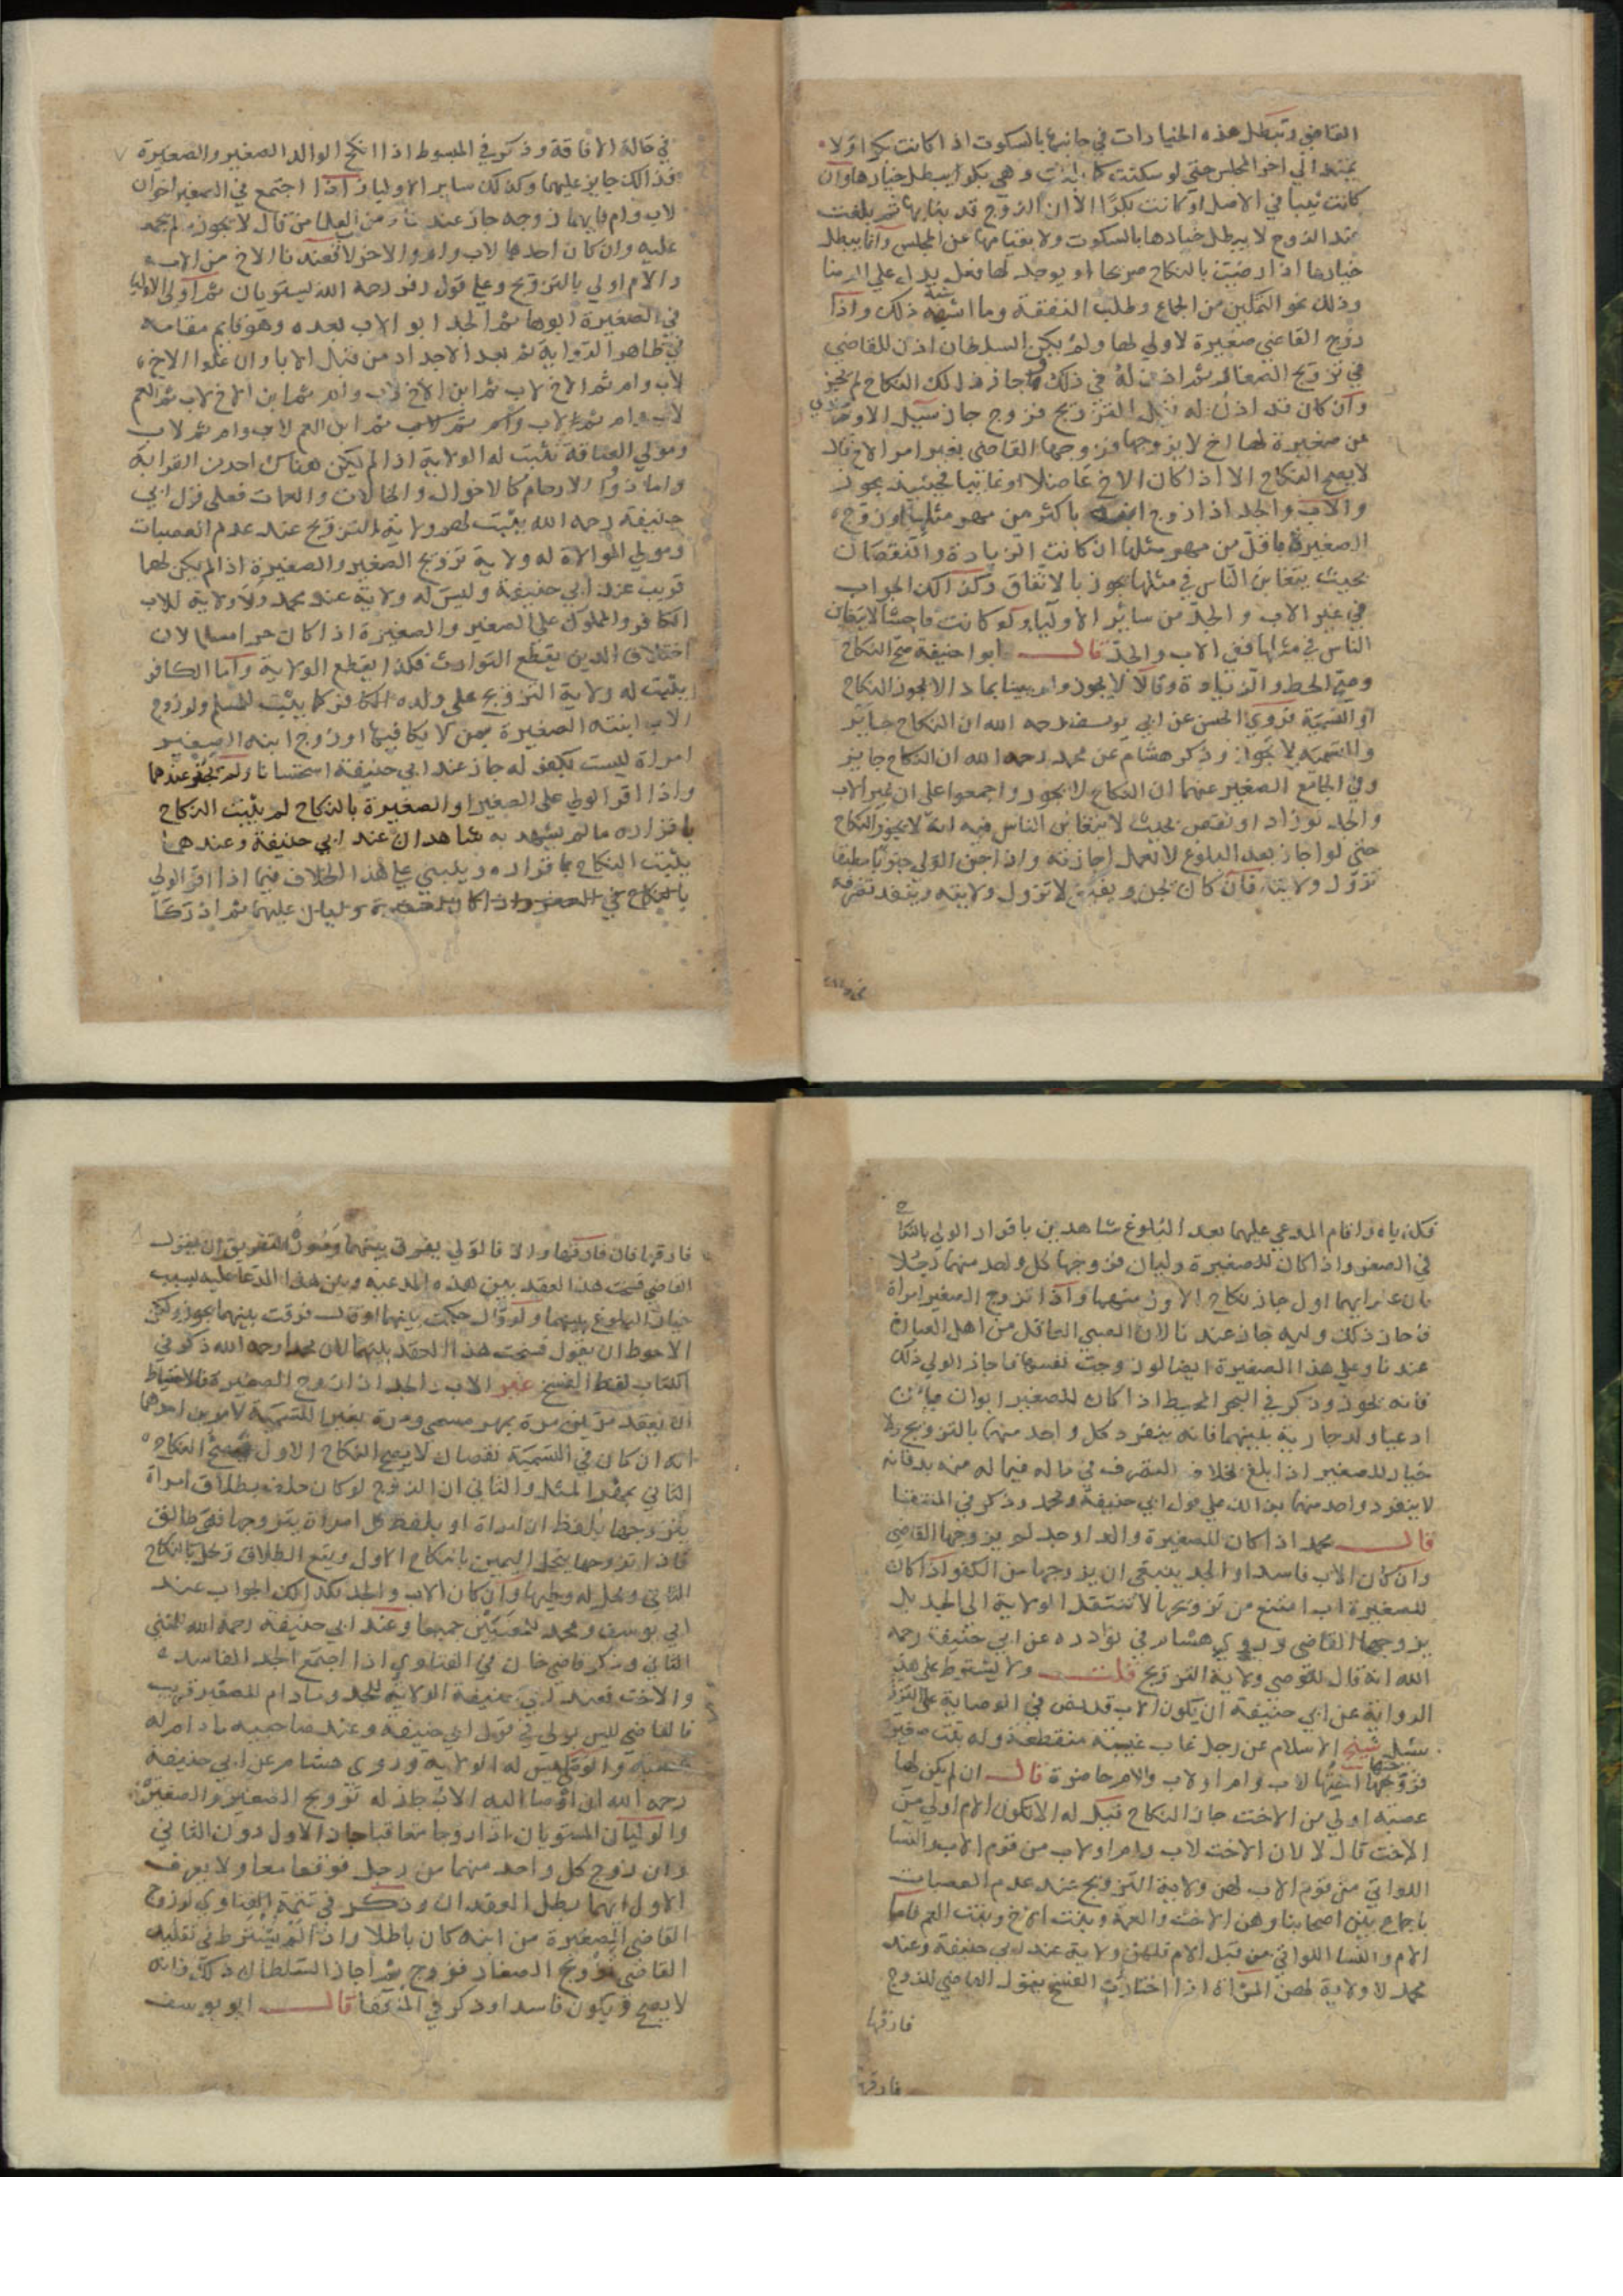 القاضي وتبطل هذه الخيارات في جانبها بالسكوت اذا كانت بكرا ولا
يمتد الي اخر المجلس حتي لو سكتت كما بلغت وهي بكرا يبطل خيارها وان
كانت ثيبا في الاصل او كانت بكرا الا ان الزوج قد بني بها ثم بلغت
عند الزوج لا يبطل خيارها بالسكوت ولا بقيامها عن المجلس وانما يبطل
خيارها اذا رضيت بالنكاح صريحا او يوجد لها فعل يدل علي الرضا
وذلك نحو التمكين من الجماع وطلب النفقة وما اشبه ذلك واذا
زوج القاضي صغيرة لا ولي لها ولم يكن السلطان اذن للقاضي
في تزويج الصغائر ثم اذن له في ذلك فاجاز ذلك النكاح لم يجز
وان كان قد اذن له قبل التزويج فزوج جاز سيل الاوزجندي
عن صغيرة لها اخ لا يزوجها فزوجها القاضي بغير امر الاخ قال
لا يصح النكاح الا اذا كان الاخ عاضلا او غائبا فحينئذ يجوز
والاب والجد اذا زوج ابنه باكثر من مهر مثلها او زوج
الصغيرة باقل من مهر مثلها ان كانت الزيادة والنقصان
بحيث يتغابن الناس في مثلها يجوز بالاتفاق وكذالك الجواب
في غير الاب والجد من ساير الاولياء ولو كانت فاحشا لا يتغابن
الناس في مثلها ففي الاب والجد قال ابوا حنيفة صح النكاح
وصح الحط والزيادة وقالا لا يجوز ولم يبينا بماذا لا يجوز النكاح
او التسمية فروي الحسن عن ابي يوسف رحمه الله ان النكاح جايز
والتسمية لا تجوز وذكر هشام عن محمد رحمه الله ان النكاح جايز
وفي الجامع الصغير عنهما ان النكاح لا يجوز واجمعوا علي ان غير الاب
والجد لو زاد او نقص بحيث لا يتغابن الناس فيه انه لا يجوز النكاح
حتي لو اجاز بعد البلوغ لا تعمل اجازته واذا جن الولي جنونا مطبقا
تزول ولايته فان كان يجن ويفيق لا تزول ولايته وينفذ تصرفه
في حالة الافاقة وذكر في المبسوط اذا انكح الوالد الصغير والصغيرة
فذالك جايز عليهما وكذلك ساير الاوليا واذا اجتمع في الصغير اخوان
لاب وام فايهما زوجه جاز عندنا ومن العلما من قال لا يجوز ما لم يجتمعا
عليه وان كان احدهما لاب وام والاخر لاب فعندنا الاخ من الاب
والام اولي بالتزويج وعلي قول زفر رحمه الله يستويان ثم اولي الاوليا
في الصغيرة ابوها ثم الجد ابو الاب بعده وهو قايم مقامه
في ظاهر الرواية ثم بعد الاجداد من قبل الابا وان علوا الاخ
لاب وام ثم الاخ لاب ثم ابن الاخ لاب وام ثم ابن الاخ لاب ثم العم
لاب وام ثم لاب وام ثم لاب ثم ابن العم لاب وام ثم لاب
ومولي العتاقة تثبت له الولاية اذا لم يكن هناك احد من القرابة
واما ذوا الارحام كالاخوال والخالات والعمات فعلي قول ابي
حنيفة رحمه الله يثبت لهم ولاية التزويج عند عدم العصبات
ومولي الموالاة له ولاية تزويج الصغير والصغيرة اذا لم يكن لهما
قريب عند ابي حنيفة وليس له ولاية عند محمد ولا ولاية للاب
الكافر والمملوك علي الصغير والصغيرة اذا كان حرا مسلما لان
اختلاف الدين يقطع التوارث فكذا يقطع الولاية واما الكافر
يثبت له ولاية التزويج علي ولده الكافر كما يثبت للمسلم ولو زوج
الاب ابنته الصغيرة ممن لا يكافيها او زوج ابنه الصغير
امراة ليست بكفو له جاز عند ابي حنيفة استحسانا ولم يجز عندهما
واذا اقر الولي علي الصغير او الصغيرة بالنكاح لم يثبت النكاح
باقراره ما لم يشهد به شاهدان عند ابي حنيفة وعندهما
يثبت النكاح باقراره ويبتني علي هذا الخلاف فيما اذا اقر الولي
بالنكاح في الصغر واذا كان للصغيرة وليان عليهما ثم ادركا
فكذباه واقام المدعي عليهما بعد البلوغ شاهدين باقرار الولي بالنكاح
في الصغر واذا كان للصغيرة وليان فزوجها كل واحد منهما رجلا
فان علم ايهما اول جاز نكاح الاول منهما واذا تزوج الصغير امراة
فاجاز ذلك وليه جاز عندنا لان الصبي العاقل من اهل العبارة
عندنا وعلي هذا الصغيرة ايضا لو زوجت نفسها فاجاز الولي ذلك
فانه يجوز وذكر في البحر المحيط اذا كان للصغير ابوان فان
ادعيا ولد جارية بينهما فانه ينفرد كل واحد منهما بالتزويج ولا
خيار للصغير اذا بلغ بخلاف التصرف في ماله فيما له منه بد فانه
لا ينفرد واحد منهما بذلك علي قول ابي حنيفة ومحمد وذكر في المنتقا
قال محمد اذا كان للصغيرة والد او جد لم يزوجها القاضي
وان كان الاب فاسدا والجد ينبغي ان يزوجها من الكفو اذا كان
للصغيرة اب امتنع من تزويجها لا تنتقل الولاية الي الجد بل
يزوجها القاضي وروي هشام في نوادره عن ابي حنيفة رحمه
الله انه قال للوصي ولاية التزويج قلت ولا يشترط علي هذه
الرواية عن ابي حنيفة ان يكون الاب قد نص في الوصاية علي التزويج
سئل شيخ الاسلام عن رجل غاب غيبة منقطعة وله بنت صغيرة
فزوجها اختها لاب وام او لاب والام حاضرة قال ان لم يكن لها
عصبة اولي من الاخت جاز النكاح قيل له الا تكون الام اولي من
الاخت قال لا لان الاخت لاب وام او لاب من قوم الاب والنسا
اللواتي من قوم الاب لهن ولاية التزويج عند عدم العصبات
باجماع بين اصحابنا وهن الاخت والعمة وبنت الاخ وبنت العم فاما
الام والنسا اللواتي من قبل الام فلهن ولاية عند ابي حنيفة وعند
محمد لا ولاية لهن المراة اذا اختارت الفسخ يقول القاضي للزوج
فارقها
فارقها فان فارقها والا فالولي يفرق بينهما وصورة التفريق ان يقول
القاضي فسخت هذا العقد بين هذه المدعية وبين هذا المدعا عليه بسبب
خيار البلوغ بينهما ولو قال حكمت بينهما او قال فرقت بينهما يجوز ولكن
الاحوط ان يقول فسخت هذا العقد بينهما لان محمدا رحمه الله ذكر في
الكتاب لفظ الفسخ غير الاب والجد اذا زوج الصغيرة فالاحتياط
ان يعقد مرتين مرة بمهر مسمي ومرة بغير التسمية لامرين احدهما
انه ان كان في التسمية نقصان لا يصح النكاح الاول فيصح النكاح
الثاني بمهر المثل والثاني ان الزوج لو كان حلف بطلاق امراة
يتزوجها بلفظ ان امراة او بلفظ كل امراة يتزوجها فهي طالق
فاذا تزوجها ينحل اليمين بالنكاح الاول ويقع الطلاق وتحل بالنكاح
الثاني ويحل له وطيها وان كان الاب والجد فكذالك الجواب عند
ابي يوسف ومحمد للمعنيين جميعا وعند ابي حنيفة رحمه الله للمعني
الثاني وذكر قاضي خان في الفتاوي اذا اجتمع الجد الفاسد
والاخت فعند ابي حنيفة الولاية للجد وما دام للصغير قريب
فالقاضي ليس بولي في قول ابي حنيفة وعند صاحبيه ما دام له
عصبة والوصي ليس له الولاية وروي هشام عن ابي حنيفة
رحمه الله ان اوصا اليه الاب جاز له تزويج الصغير والصغيرة
والوليان المستويان اذا زوجا متعاقبا جاز الاول دون الثاني
وان زوج كل واحد منهما من رجل فوقعا معا ولا يعرف
الاول ايهما بطل العقدان وذكر في تتمة الفتاوي لو زوج
القاضي الصغيرة من ابنه كان باطلا واذا لم يشترط في تقليد
القاضي تزويج الصغار فزوج ثم اجاز السلطان ذلك فانه
لا يصح ويكون فاسدا وذكر في المنتقا قال ابو يوسف